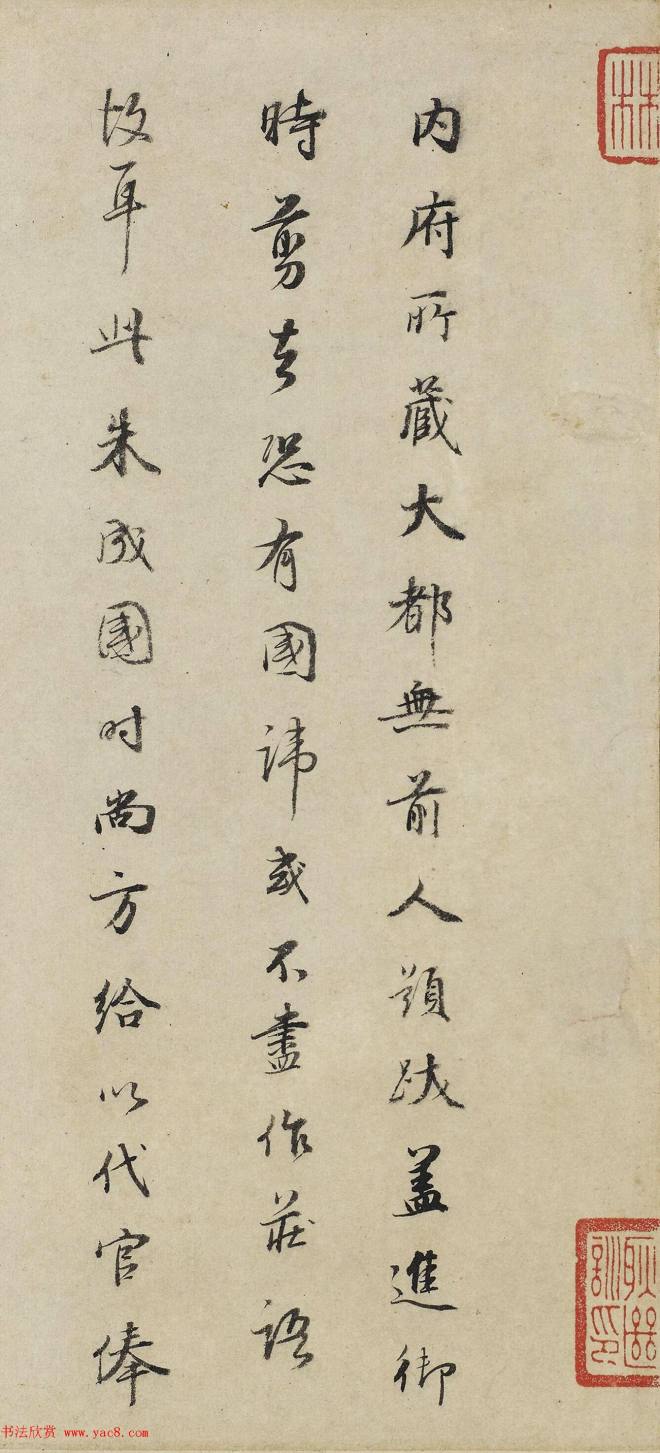 内府所藏大都無前人題跋盖進御
時剪去恐有國諱或不盡作莊語
故耳此朱成國时尚方給以代官俸
林
耿嘉祚印
书法欣赏 www.yac8.com